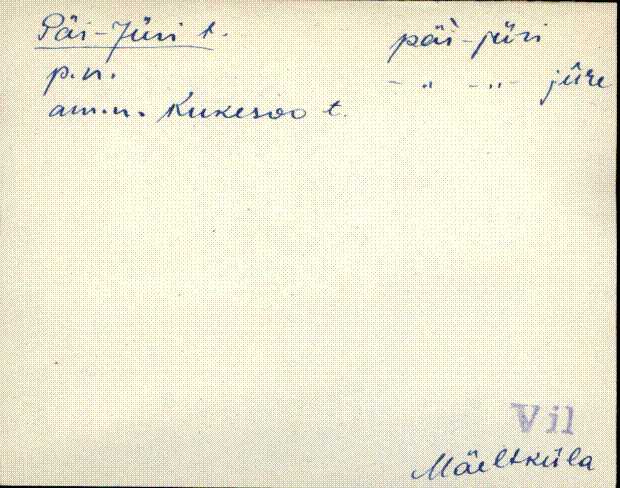 Päi-Jüri t. päi-jüri
p.n. - " - " - jüre
am.n. Kukesoo t.
Vil
Mäeltküla